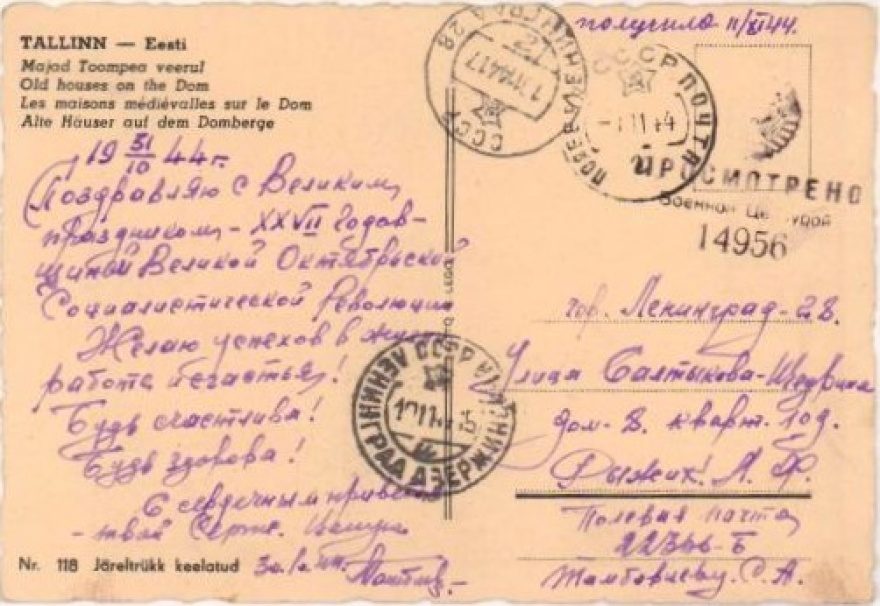 получила 11/XI 44.
TALLINN — Eesti
Majad Toompea veerul
Old houses on the Dom
Les maisons médiévalles sur le Dom
Alte Häuser auf dem Domberge
19 31/10 44 г.
Поздравляю с Великим
праздником - XXVII годов-
щиной Великой Октябрьской
Социалистической Революции
Желаю успехов в
работе и счастья!
Будь счастлива!
Будь здорова!
С сердечным приветом
- твой
Nr. 118 Järeltrükk keelatud
ЛЕНИНГРАД 28
СССР
СССР ПОЧТА
ПРОСМОТРЕНО
Военной Цензурой
14956
ЛЕНИНГРАД ДЗЕРЖИНС
СССР
гор. Ленинград-28.
Улица Салтыкова-Щедрина
дом-8. кварт. 10д.
Рыжик! А. Ф.
Полевая почта
22366-Б
С. А.